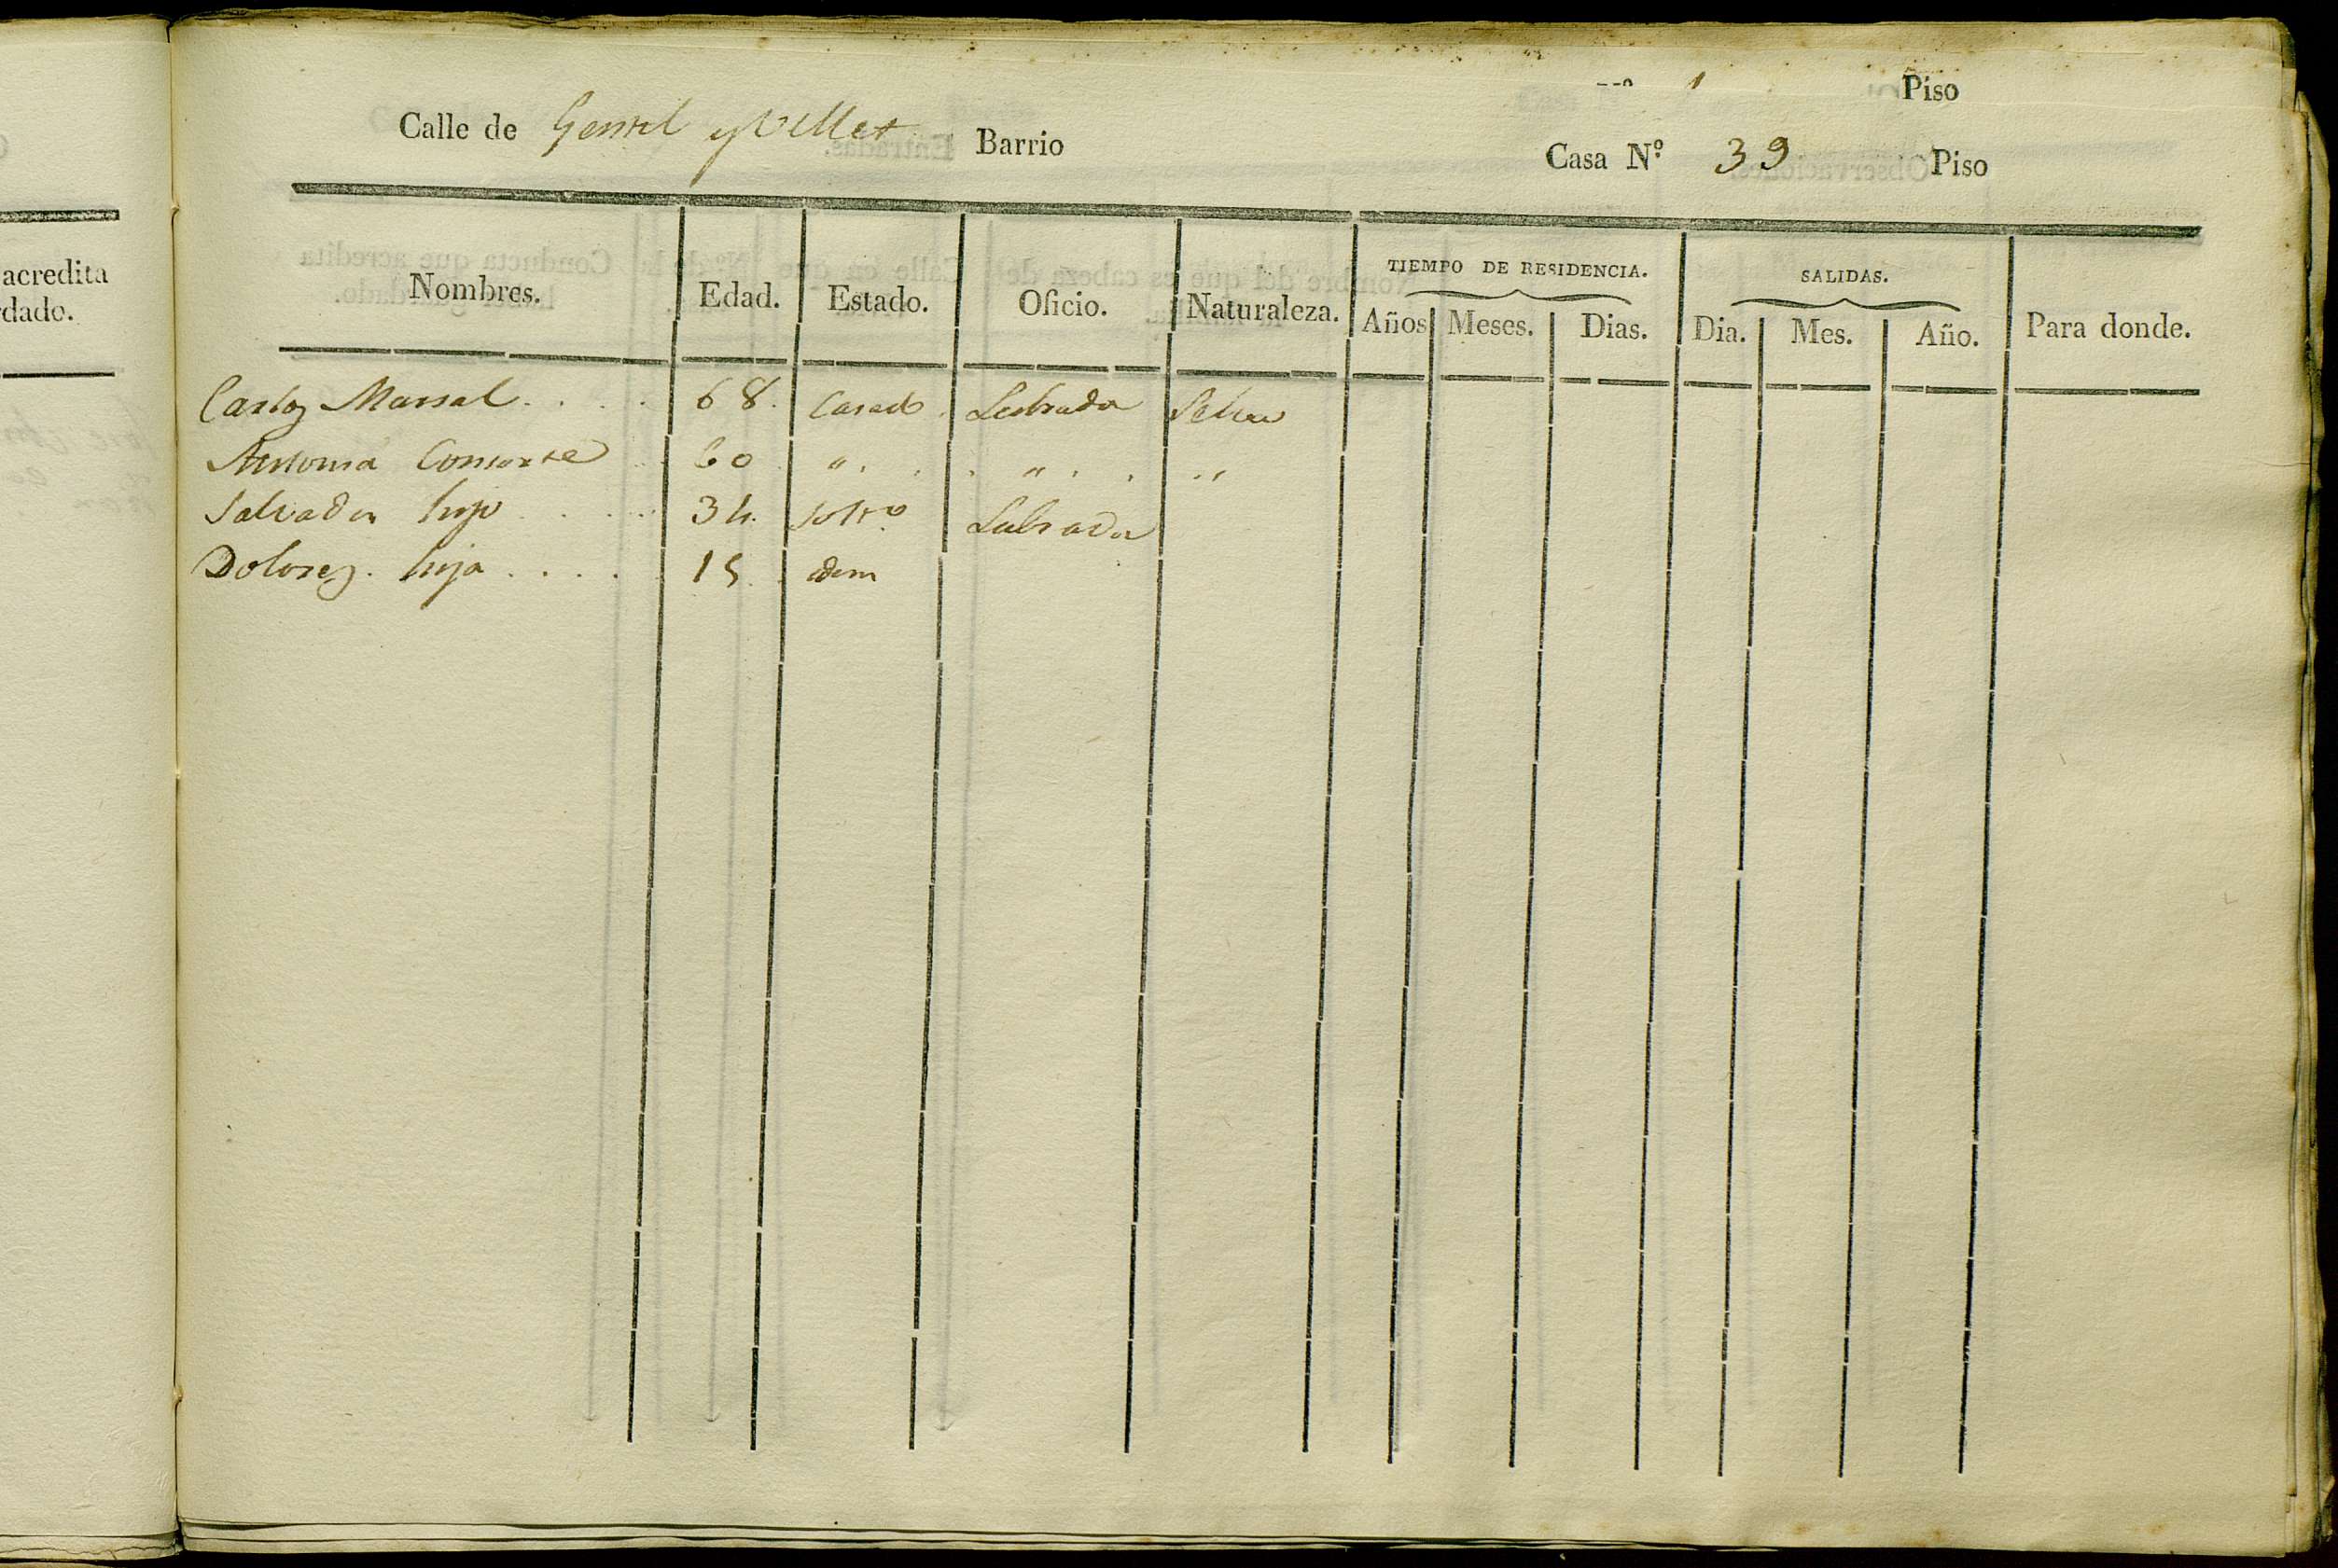 acredita
dado.
Piso
Calle de Gentil y Vellet Barrio Casa N.º 39 Piso
Nombres. Edad. Estado. Oficio. Naturaleza. TIEMPO DE RESIDENCIA. Años Meses. Dias. SALIDAS. Dia. Mes. Año. Para donde.
Carlos Marsal . . . . 68. Casado. Labrador Selva
Antonia Consorte 60 " . . . " . . "
Salvador hijo . . . . 34. solt.º Labrador
Dolores. hija . . . . 15. idem